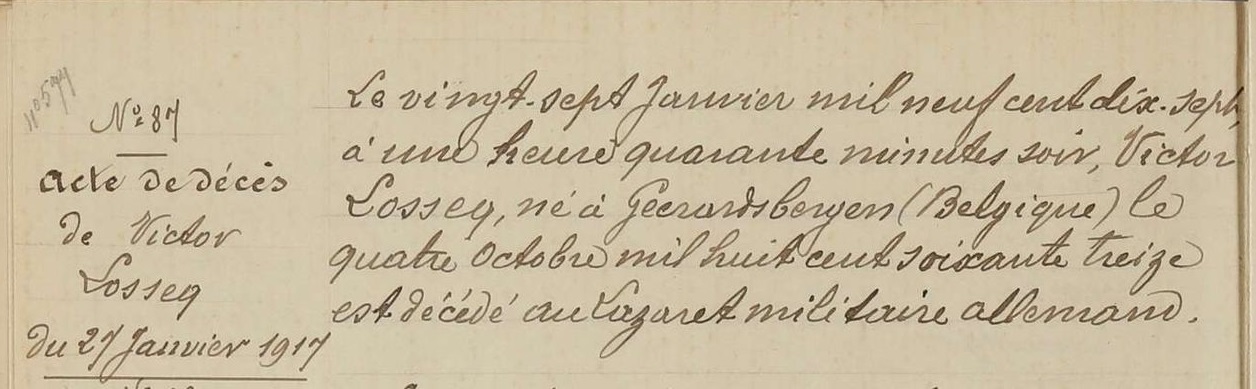 N° 87
acte de décès
de Victor
Losseq
du 27 Janvier 1917
Le vingt-sept Janvier mil neuf cent dix-sept,
à une heure quarante minutes soir, Victor
Losseq, né à Geerardsbergen (Belgique) le
quatre Octobre mil huit cent soixante treize
est décédé au Lazaret militaire allemand.